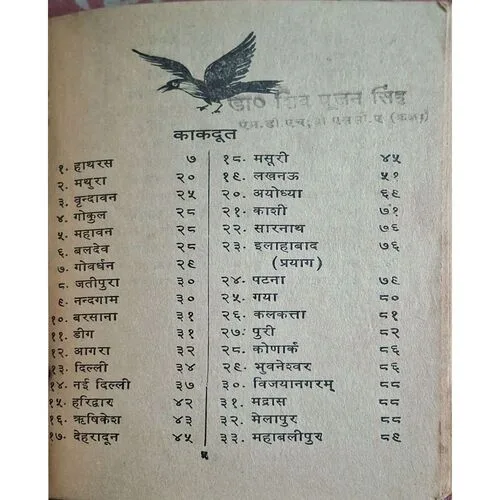 डा० शिव पूजन सिंह
एम.डी.एच;
काकदूत
१. हाथरस ७
२. मथुरा २०
३. वृन्दावन २५
४. गोकुल २८
५. महावन २८
६. बलदेव २८
७. गोवर्धन २९
८. जतीपुरा ३०
९. नन्दगाम ३०
१०. बरसाना ३१
११. डीग ३१
१२. आगरा ३२
१३. दिल्ली ३४
१४. नई दिल्ली ३७
१५. हरिद्वार ४२
१६. ऋषिकेश ४३
१७. देहरादून ४५
१८. मसूरी ४५
१९. लखनऊ ५१
२०. अयोध्या ६९
२१. काशी ७१
२२. सारनाथ ७६
२३. इलाहाबाद ७६
(प्रयाग)
२४. पटना ७९
२५. गया ८०
२६. कलकत्ता ८१
२७. पुरी ८२
२८. कोणार्क ८६
२९. भुवनेश्वर ८६
३०. विजयानगरम् ८८
३१. मद्रास ८८
३२. मेलापुर ८८
३३. महाबलीपुर ८९